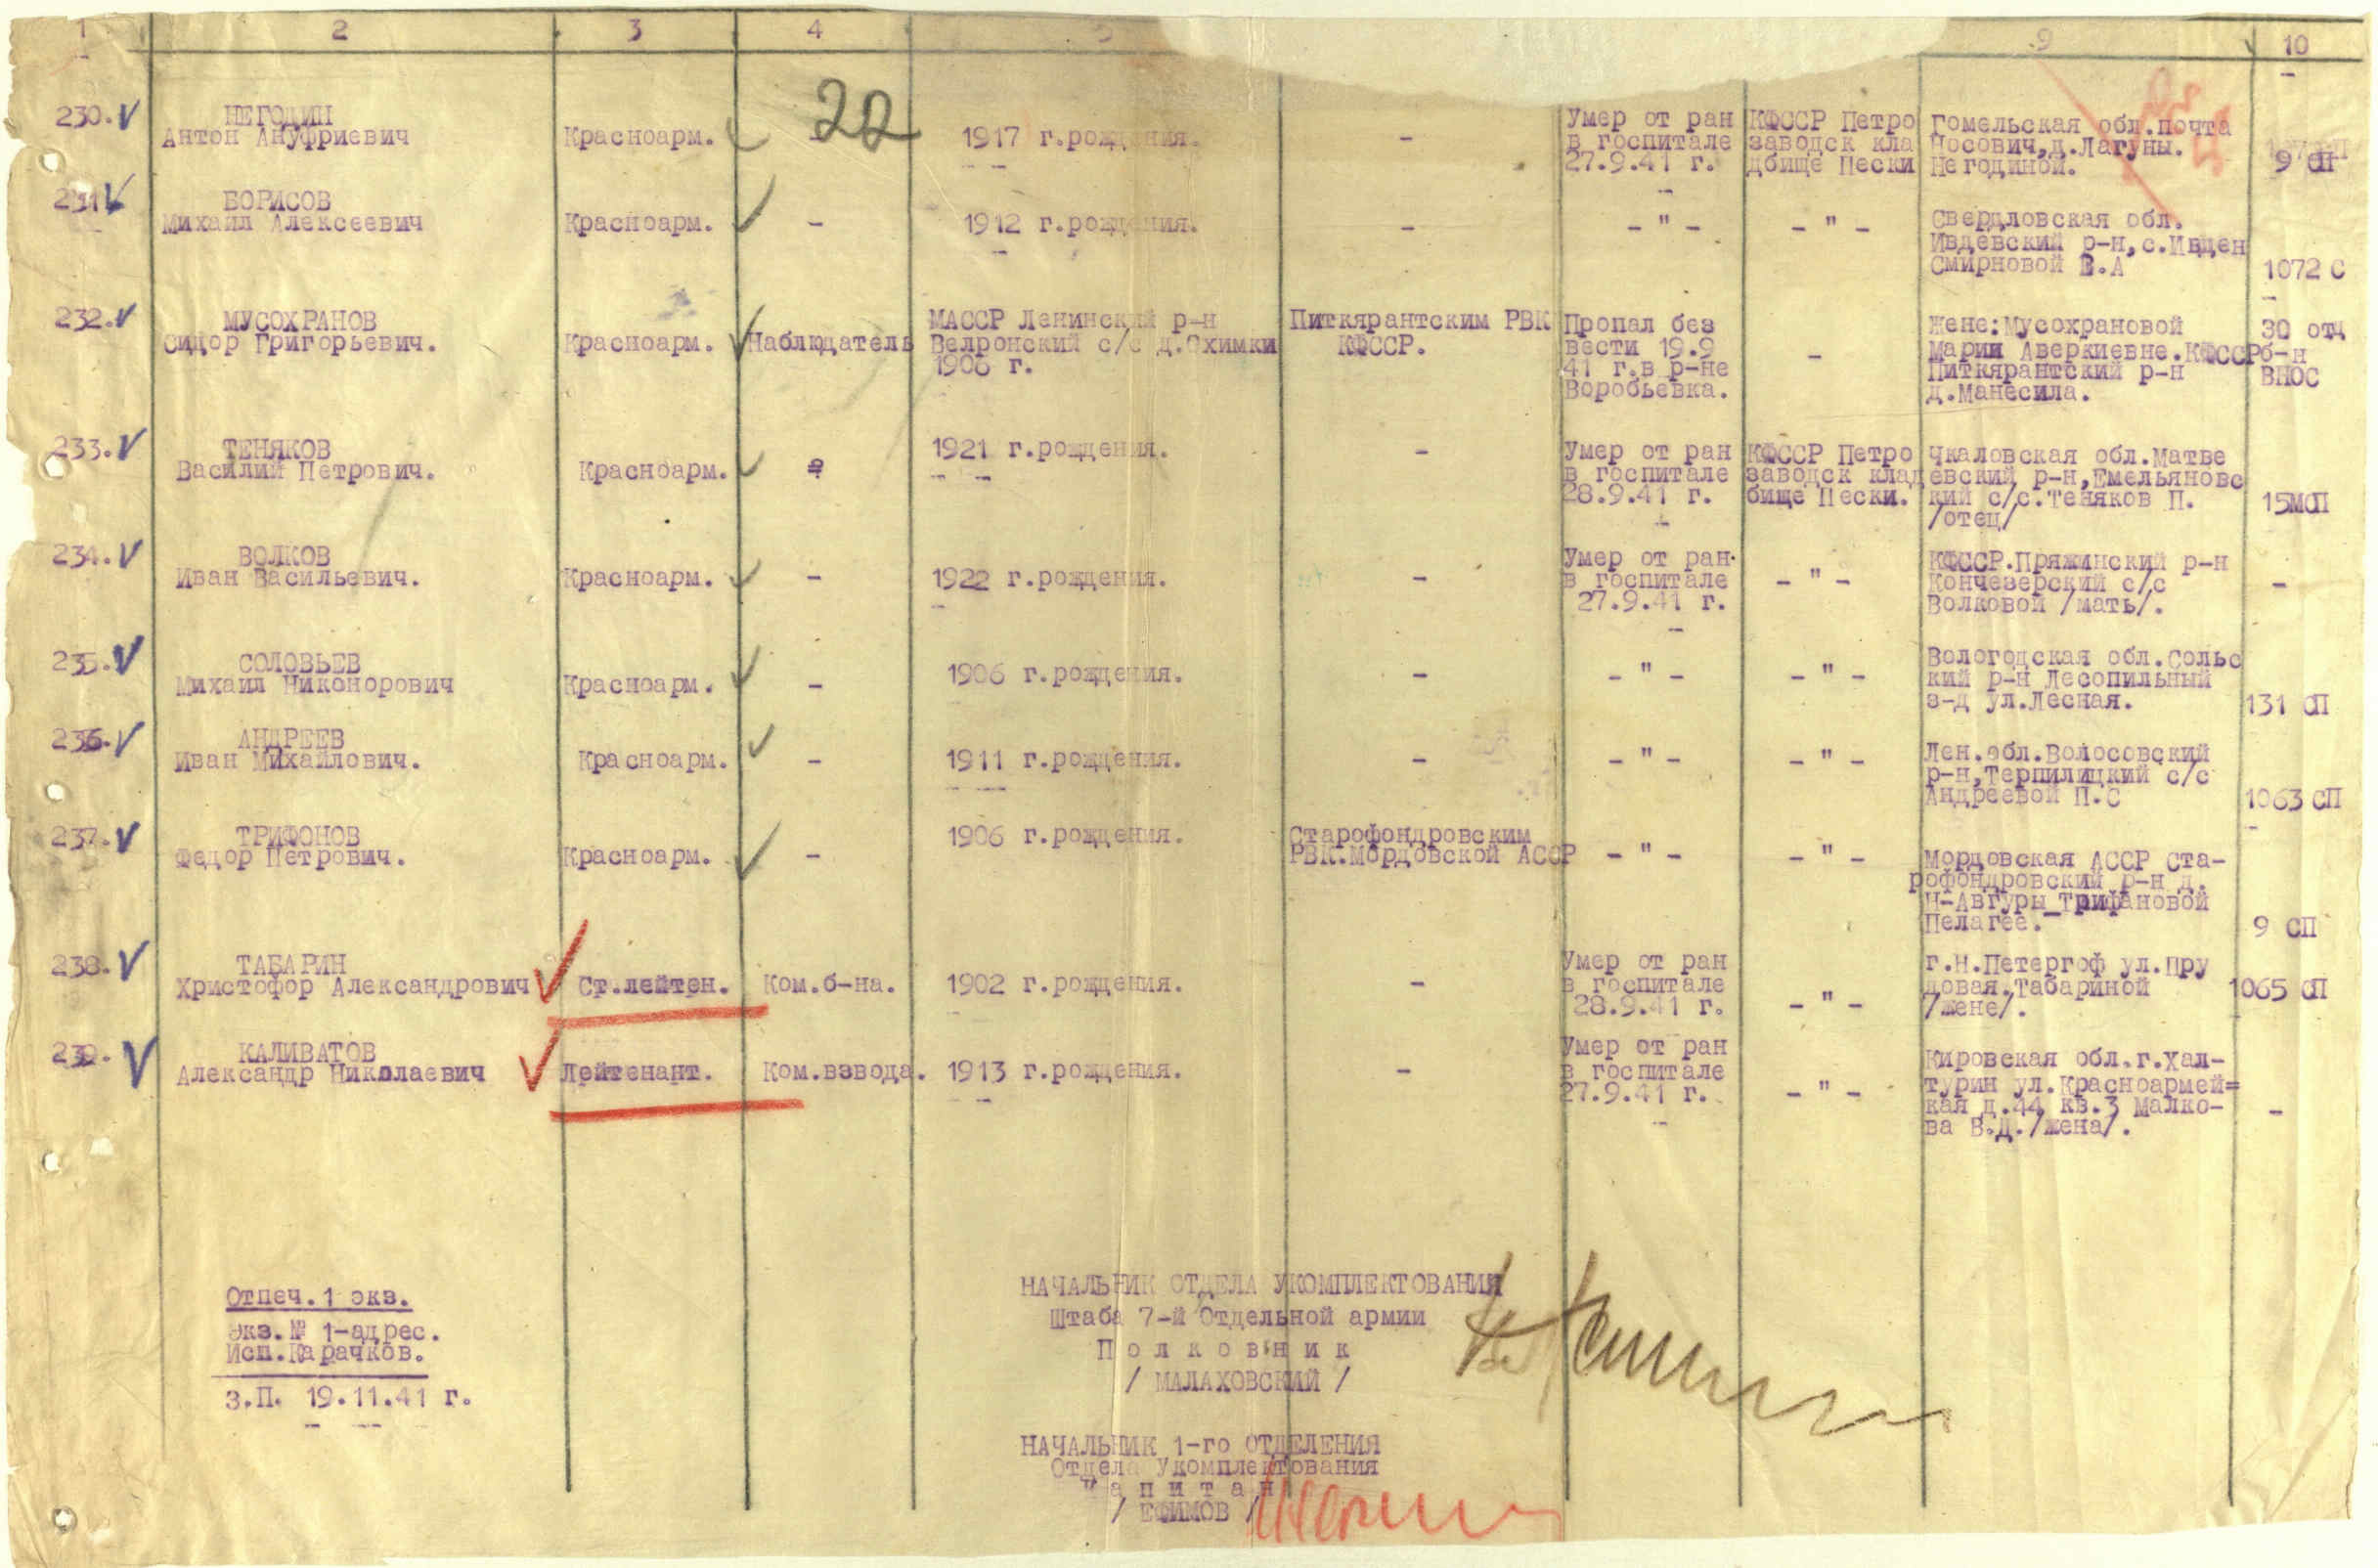 1 2 3 4 5 9 10
22
230. НЕГОДИН
Антон Ануфриевич
Красноарм.
1917 г.рождения.
-
Умер от ран
в госпитале
27.9.41 г.
КФССР Петро
заводск кла
дбище Пески
Гомельская обл.почта
Носович,д.Лагуны.
Негодиной.
9 СП
231 БОРИСОВ
Михаил Алексеевич
Красноарм.
-
1912 г.рождения.
-
- " -
- " -
Свердловская обл.
Ивдевский р-н,с.Ивден
Смирновой Е.А
1072 С
232. МУСОХРАНОВ
Сидор Григорьевич.
Красноарм.
Наблюдатель
МАССР Ленинский р-н
Велронский с/с д.Охимки
1906 г.
Питкярантским РВК
КФССР.
Пропал без
вести 19.9
41 г.в р-не
Воробьевка.
-
Жене:Мусохрановой
Марии Аверкиевне.КФССР
Питкярантский р-н
д.Манесила.
30 отд
б-н
ВНОС
233. ТЕНЯКОВ
Василий Петрович.
Красноарм.
1921 г.рождения.
-
Умер от ран
в госпитале
28.9.41 г.
КФССР Петро
заводск клад
бище Пески.
Чкаловская обл.Матве
евский р-н,Емельяновс
кий с/с.Теняков П.
/отец/
15МСП
234. ВОЛКОВ
Иван Васильевич.
Красноарм.
-
1922 г.рождения.
-
Умер от ран.
в госпитале
27.9.41 г.
- " -
КФССР.Пряжинский р-н
Кончезерский с/с
Волковой /мать/.
-
235. СОЛОВЬЕВ
Михаил Никонорович
Красноарм.
-
1906 г.рождения.
-
- " -
- " -
Вологодская обл.Сольс
кий р-н Лесопильный
з-д ул.Лесная.
131 СП
236. АНДРЕЕВ
Иван Михайлович.
Красноарм.
-
1911 г.рождения.
-
- " -
- " -
Лен.обл.Волосовский
р-н,Терпилицкий с/с
Андреевой П.С
1063 СП
237. ТРИФОНОВ
Федор Петрович.
Красноарм.
-
1906 г.рождения.
Старофондровским
РВК.Мордовской АССР
- " -
- " -
Мордовская АССР Ста-
рофондровский р-н д.
Н-Авгуры Трифановой
Пелагее.
9 СП
238. ТАБАРИН
Христофор Александрович
Ст.лейтен.
Ком.б-на.
1902 г.рождения.
-
Умер от ран
в госпитале
28.9.41 г.
- " -
г.Н.Петергоф ул.Пру
довая.Табариной
/жене/.
1065 СП
239. КАЛИВАТОВ
Александр Николаевич
Лейтенант.
Ком.взвода.
1913 г.рождения.
-
Умер от ран
в госпитале
27.9.41 г.
- " -
Кировская обл.г.Хал-
турин ул.Красноармей=
кая д.44 кв.3 Малко-
ва В.Д./жена/.
-
Отпеч.1 экз.
Экз.№ 1-адрес.
Исп.Карачков.
З.П. 19.11.41 г.
НАЧАЛЬНИК ОТДЕЛА УКОМПЛЕКТОВАНИЯ
Штаба 7-й Отдельной армии
Полковник
/ МАЛАХОВСКИЙ /
НАЧАЛЬНИК 1-го ОТДЕЛЕНИЯ
Отдела Укомплектования
Капитан
/ ЕФИМОВ /